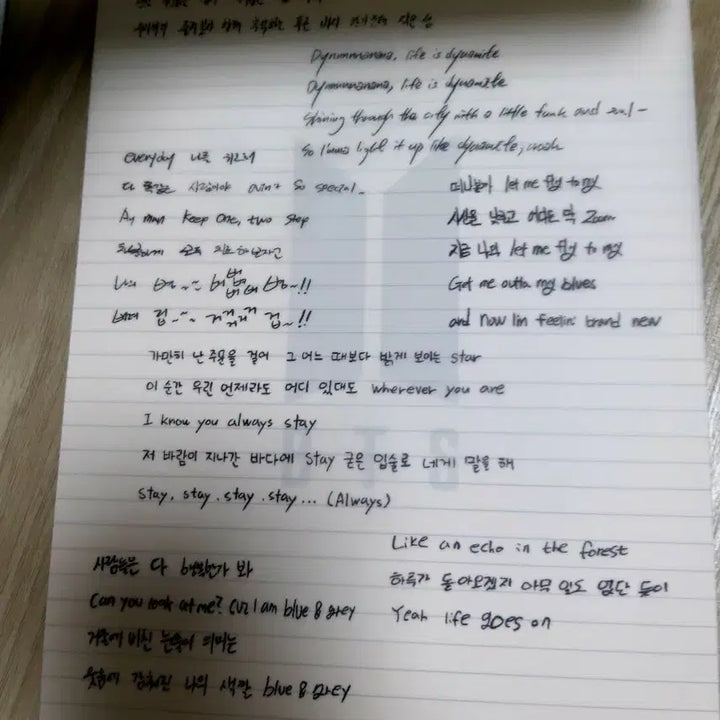 Dynnnnnanana, life is dynamite
Dynnnnnanana, life is dynamite
Shining through the city with a little funk and soul-
So I'mma light it up like dynamite, woah
Everyday 나를 위로해
다 똑같은 사람이야 ain't so special
Ay man Keep one, two step
차분하게 모두 치료해 보자고
나의 병~~
버려 겁~~
떠나볼까 let me fly to my
시선을 낮추고 어디든 막 Zoom
지금 나의 let me fly to my
Get me outta my blues
and Now I'm feelin' brand new
가만히 난 주문을 걸어 그 어느 때보다 밝게 보이는 star
이 순간 우린 언제라도 어디 있대도 wherever you are
I know you always stay
저 바람이 지나간 바다에 Stay 굳은 입술로 네게 말을 해
Stay, stay, stay, stay... (Always)
사람들은 다 행복한가 봐
Can you look at me? Cuz I am blue & grey
거울에 비친 눈물의 의미는
웃음에 감춰진 나의 색깔 blue & grey
Like an echo in the forest
하루가 돌아오겠지 아무 일도 없단 듯이
Yeah life goes on
BTS